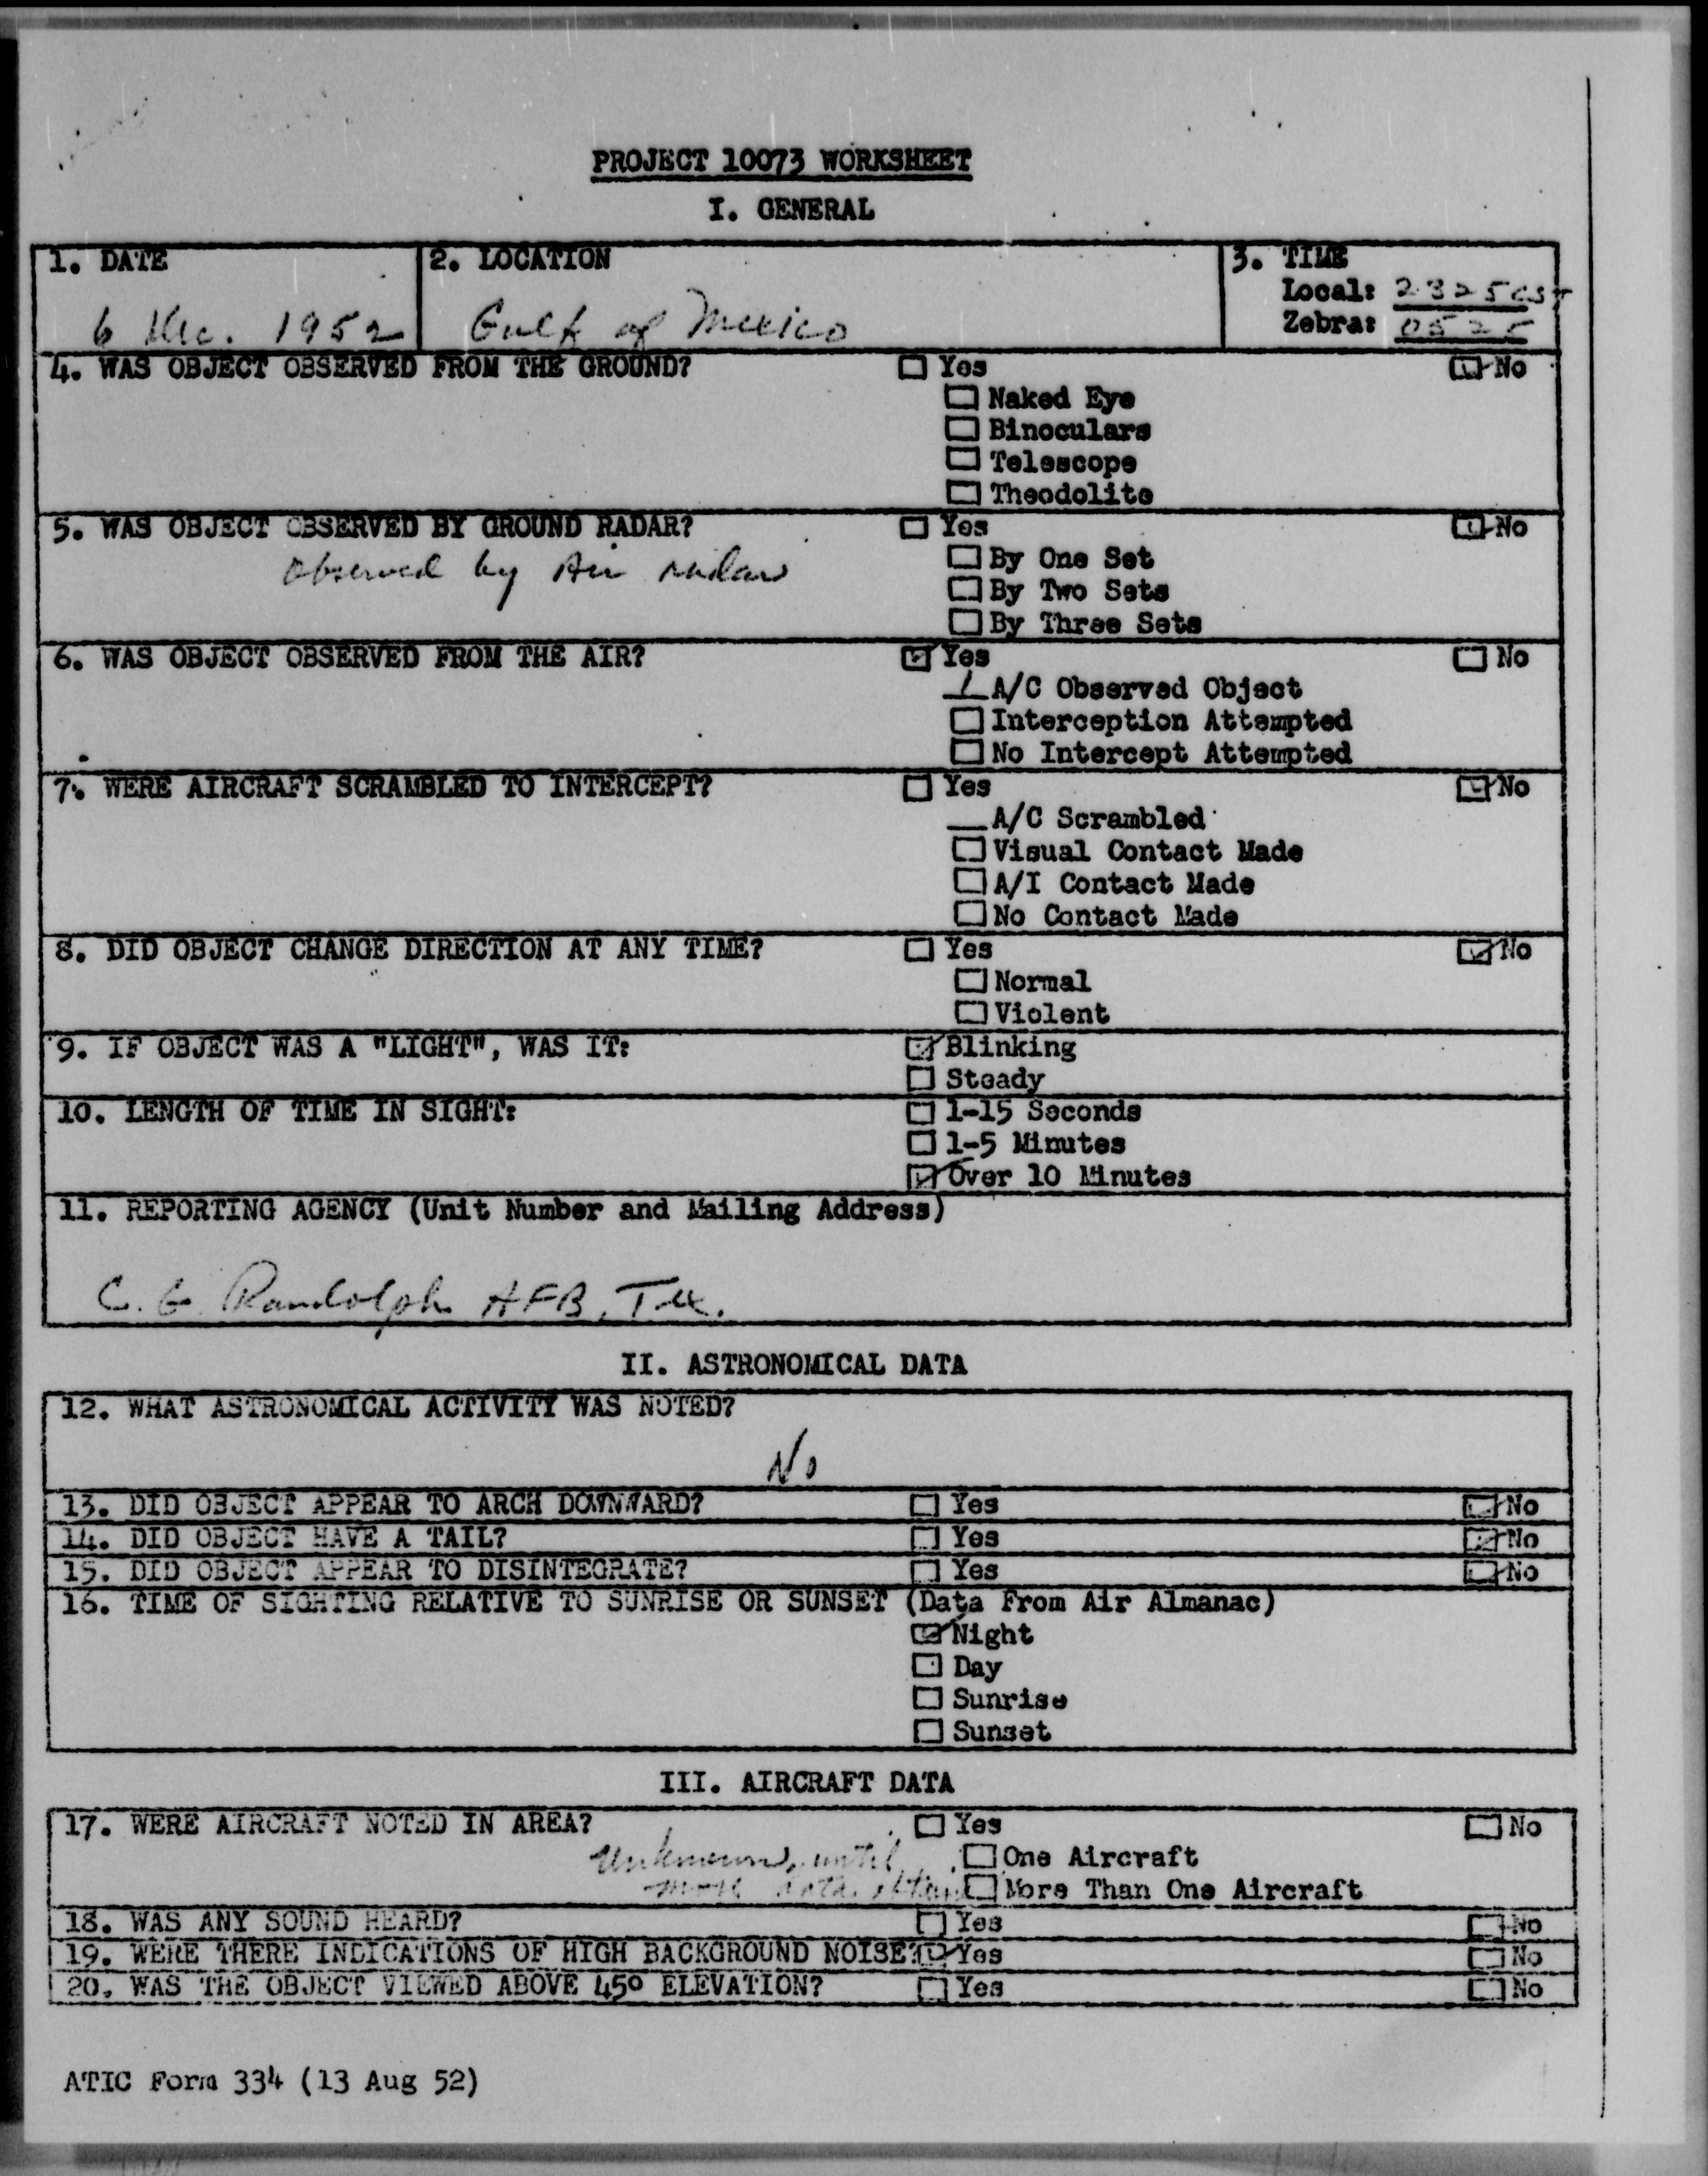 PROJECT 10073 WORKSHEET
I. GENERAL
1. DATE
6 Dec. 1952
2. LOCATION
Gulf of Mexico
3. TIME
Local: 2325 CST
Zebra: 0525
4. WAS OBJECT OBSERVED FROM THE GROUND? ☐ Yes ☑ No
☐ Naked Eye
☐ Binoculars
☐ Telescope
☐ Theodolite
5. WAS OBJECT OBSERVED BY GROUND RADAR? ☐ Yes ☑ No
Observed by Air radar
☐ By One Set
☐ By Two Sets
☐ By Three Sets
6. WAS OBJECT OBSERVED FROM THE AIR? ☑ Yes ☐ No
1 A/C Observed Object
☐ Interception Attempted
☐ No Intercept Attempted
7. WERE AIRCRAFT SCRAMBLED TO INTERCEPT? ☐ Yes ☑ No
__ A/C Scrambled
☐ Visual Contact Made
☐ A/I Contact Made
☐ No Contact Made
8. DID OBJECT CHANGE DIRECTION AT ANY TIME? ☐ Yes ☑ No
☐ Normal
☐ Violent
9. IF OBJECT WAS A "LIGHT", WAS IT: ☑ Blinking
☐ Steady
10. LENGTH OF TIME IN SIGHT: ☐ 1-15 Seconds
☐ 1-5 Minutes
☑ Over 10 Minutes
11. REPORTING AGENCY (Unit Number and Mailing Address)
C. G. Randolph AFB, Tex.
II. ASTRONOMICAL DATA
12. WHAT ASTRONOMICAL ACTIVITY WAS NOTED?
No
13. DID OBJECT APPEAR TO ARCH DOWNWARD? ☐ Yes ☑ No
14. DID OBJECT HAVE A TAIL? ☐ Yes ☑ No
15. DID OBJECT APPEAR TO DISINTEGRATE? ☐ Yes ☑ No
16. TIME OF SIGHTING RELATIVE TO SUNRISE OR SUNSET (Data From Air Almanac)
☑ Night
☐ Day
☐ Sunrise
☐ Sunset
III. AIRCRAFT DATA
17. WERE AIRCRAFT NOTED IN AREA? ☐ Yes ☐ No
Unknown, until ☐ One Aircraft
more data ☐ More Than One Aircraft
18. WAS ANY SOUND HEARD? ☐ Yes ☑ No
19. WERE THERE INDICATIONS OF HIGH BACKGROUND NOISE? ☑ Yes ☐ No
20. WAS THE OBJECT VIEWED ABOVE 45° ELEVATION? ☐ Yes ☐ No
ATIC Form 334 (13 Aug 52)